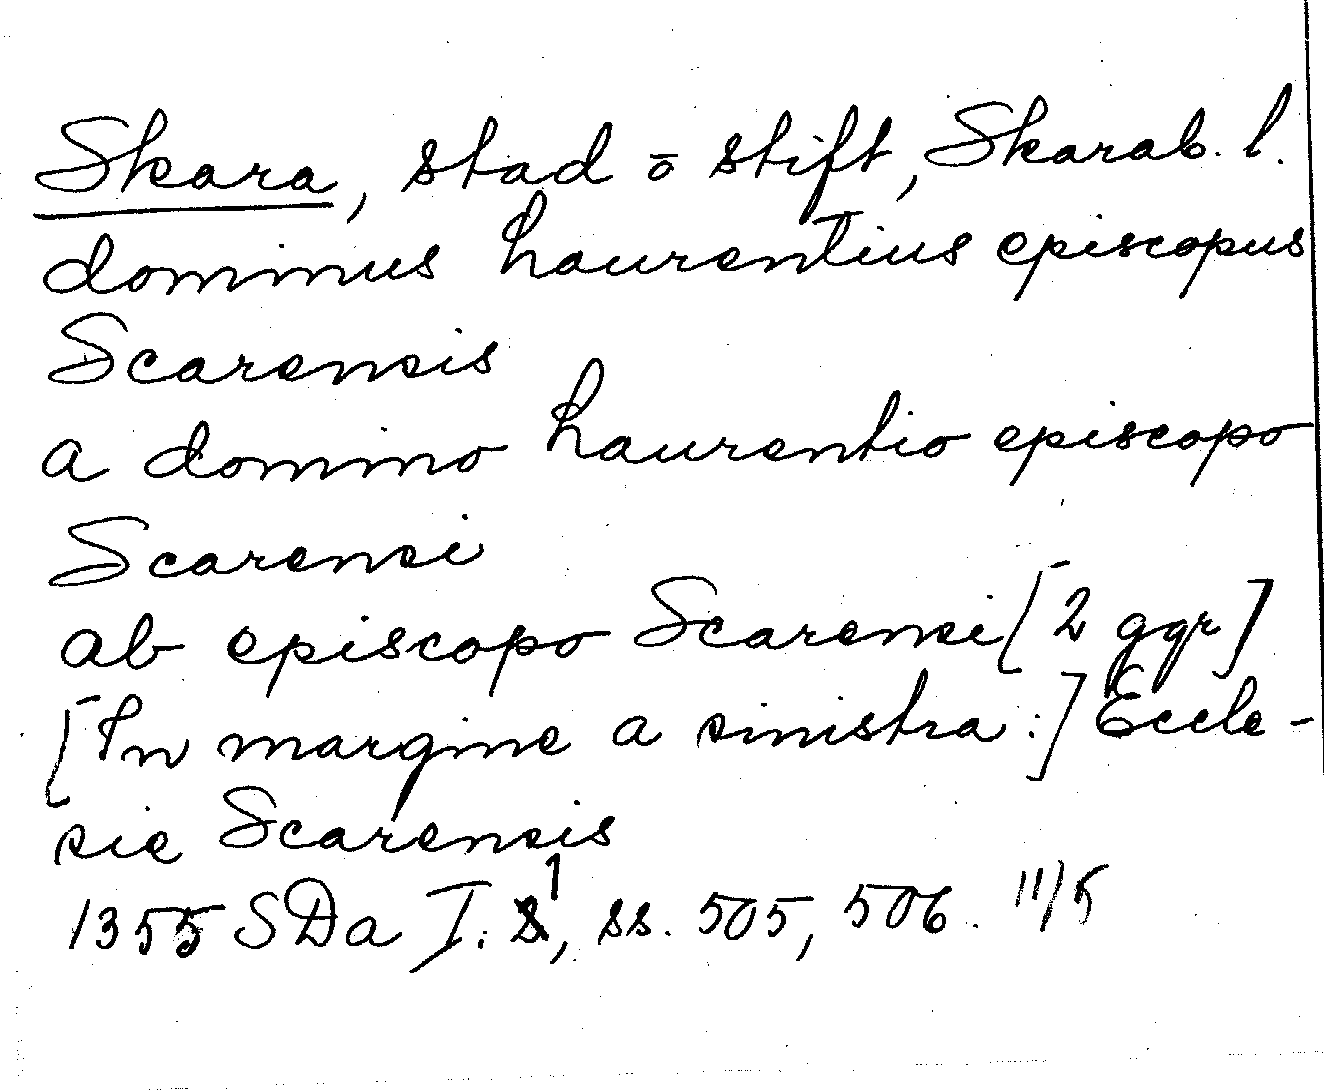 Skara, stad ō stift, Skarab. l.
dominus Laurentius episcopus
Scarensis
a domino Laurentio episcopo
Scarensi
ab episcopo Scarensi [2 ggr]
[In margine a sinistra:] Eccle-
sie Scarensis
1355 SDa I: 1, ss. 505, 506. 11/5